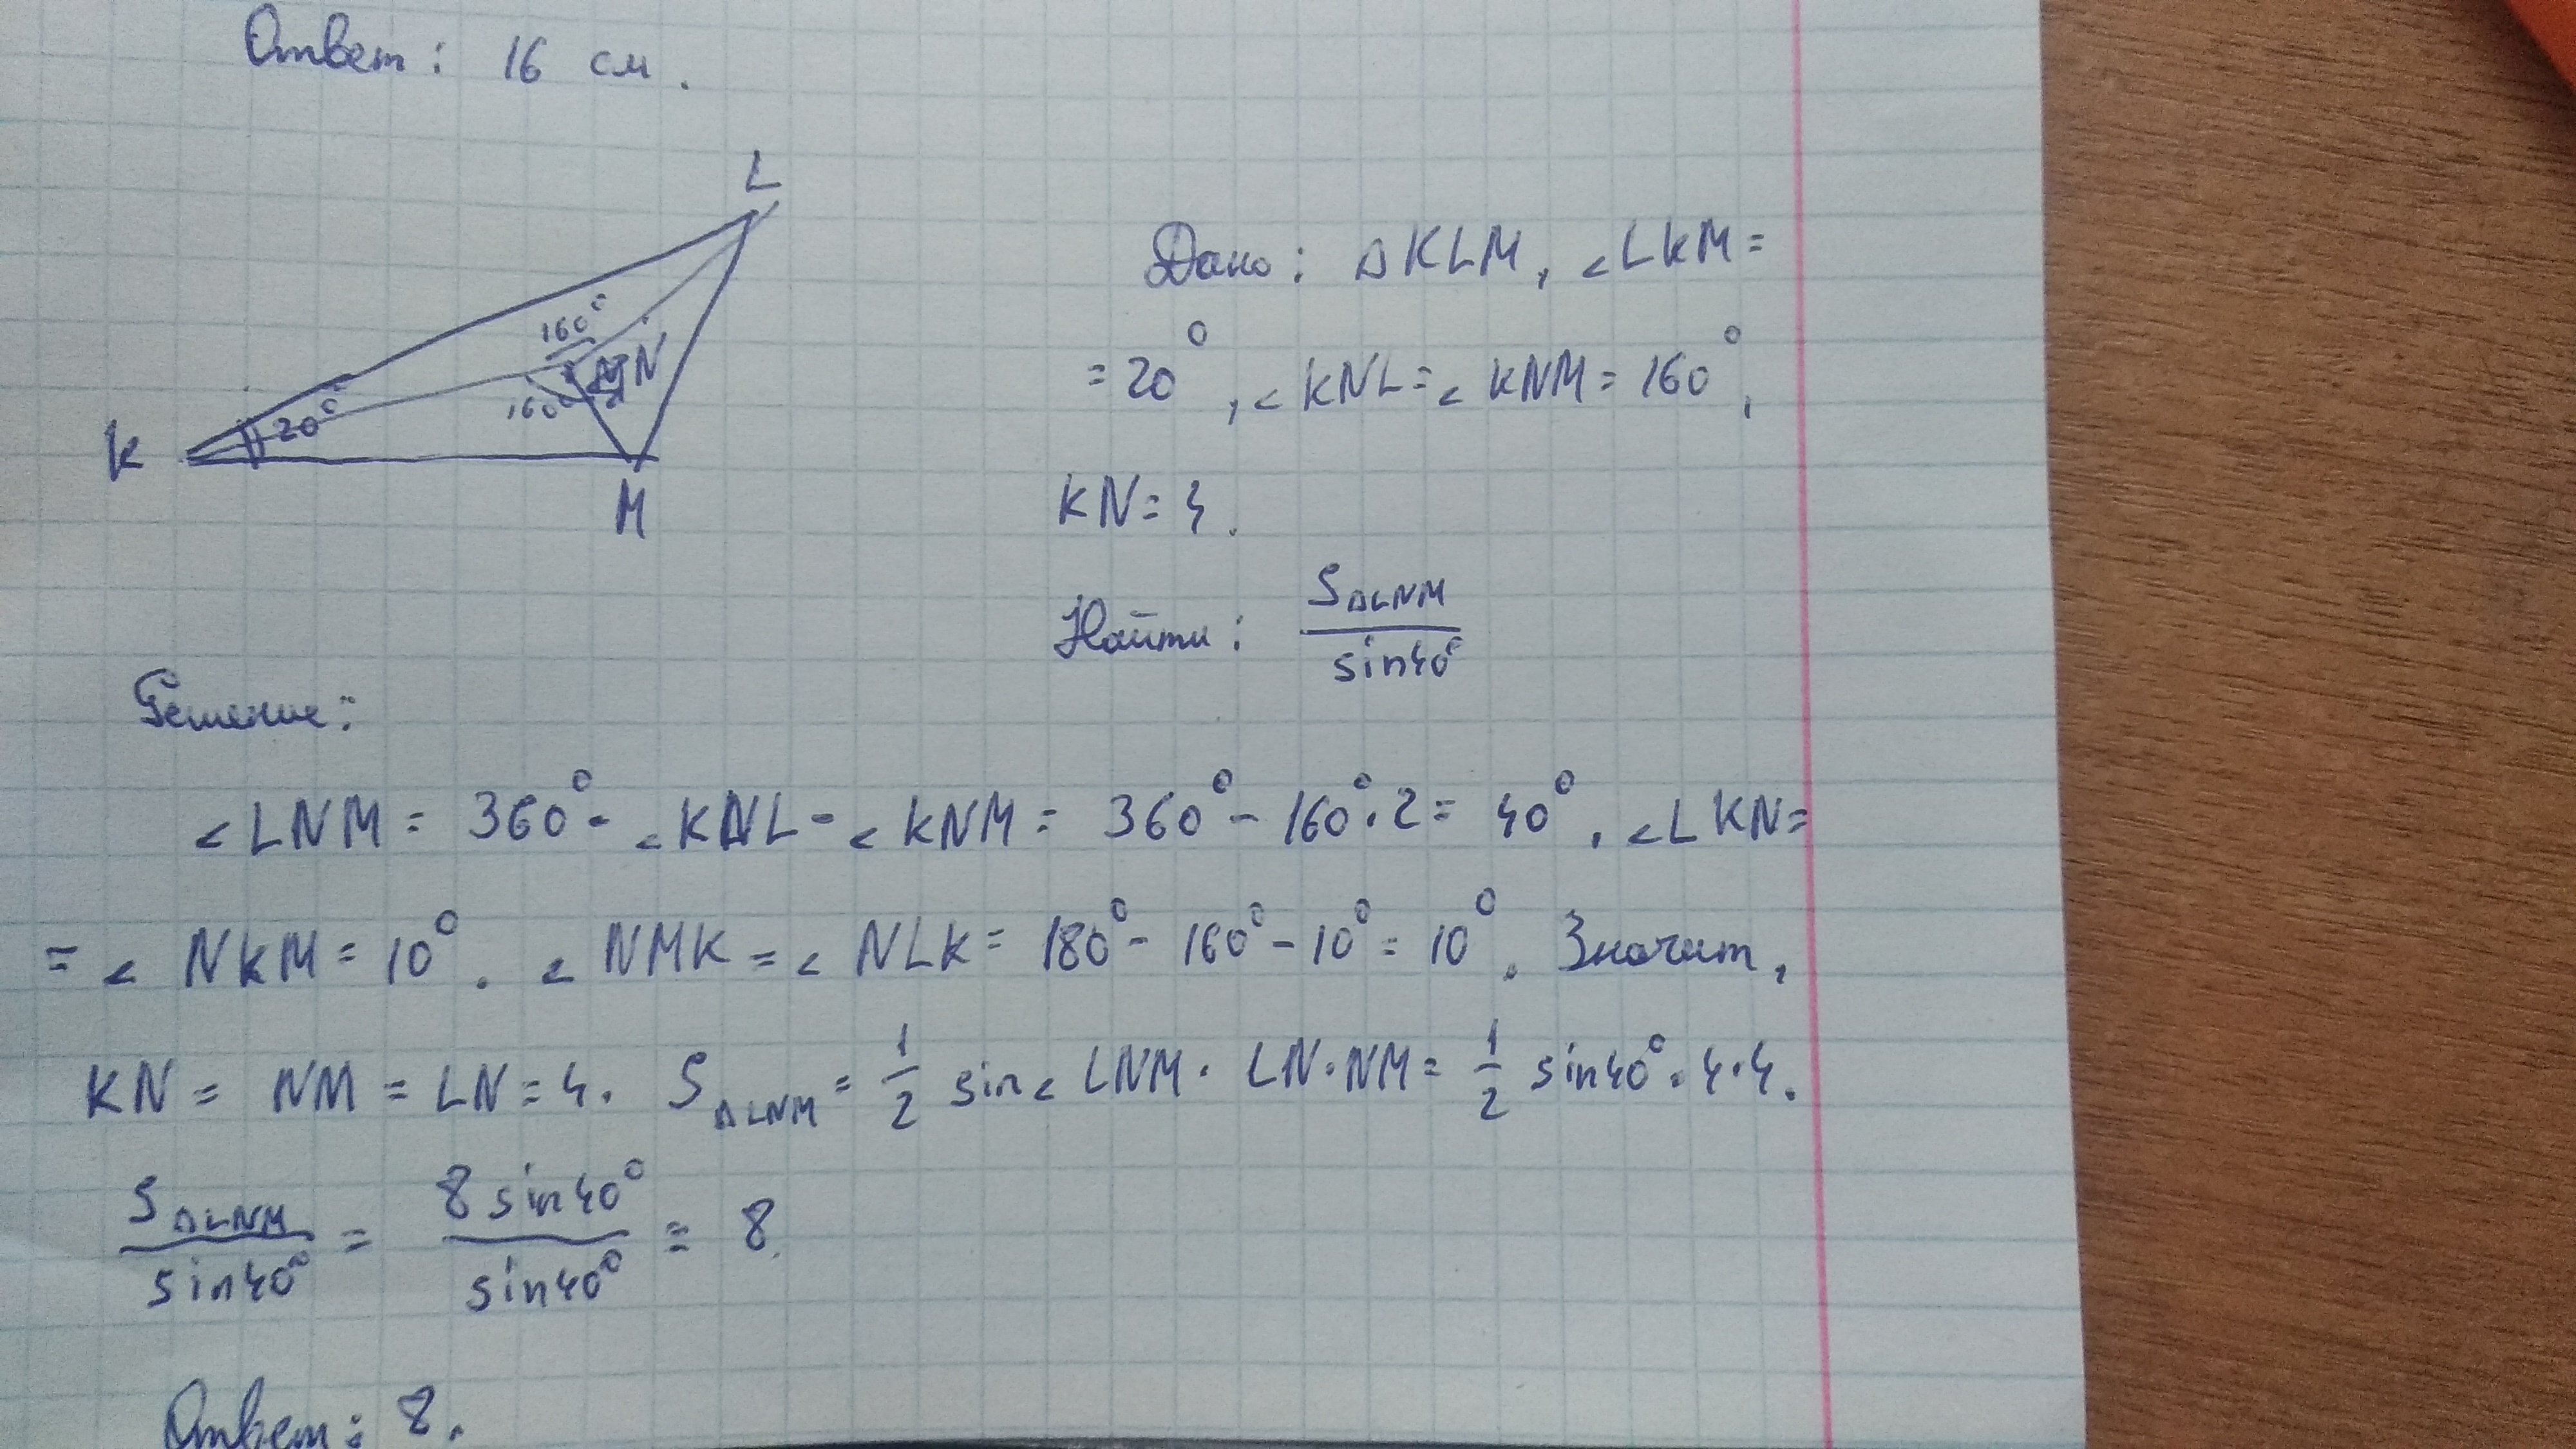 Ответ: 16 см.
L
160°
N
160°
20°
K
M
Дано: ΔKLM, ∠LKM =
= 20°, ∠KNL = ∠KNM = 160°,
KN = 4.
Найти: S ΔLNM / sin40°
Решение:
∠LNM = 360° - ∠KNL - ∠KNM = 360° - 160°·2 = 40°. ∠LKN =
= ∠NKM = 10°. ∠NMK = ∠NLK = 180° - 160° - 10° = 10°. Значит,
KN = NM = LN = 4. S ΔLNM = 1/2 sin∠LNM · LN·NM = 1/2 sin40°·4·4.
S ΔLNM / sin40° = 8 sin40° / sin40° = 8.
Ответ: 8.